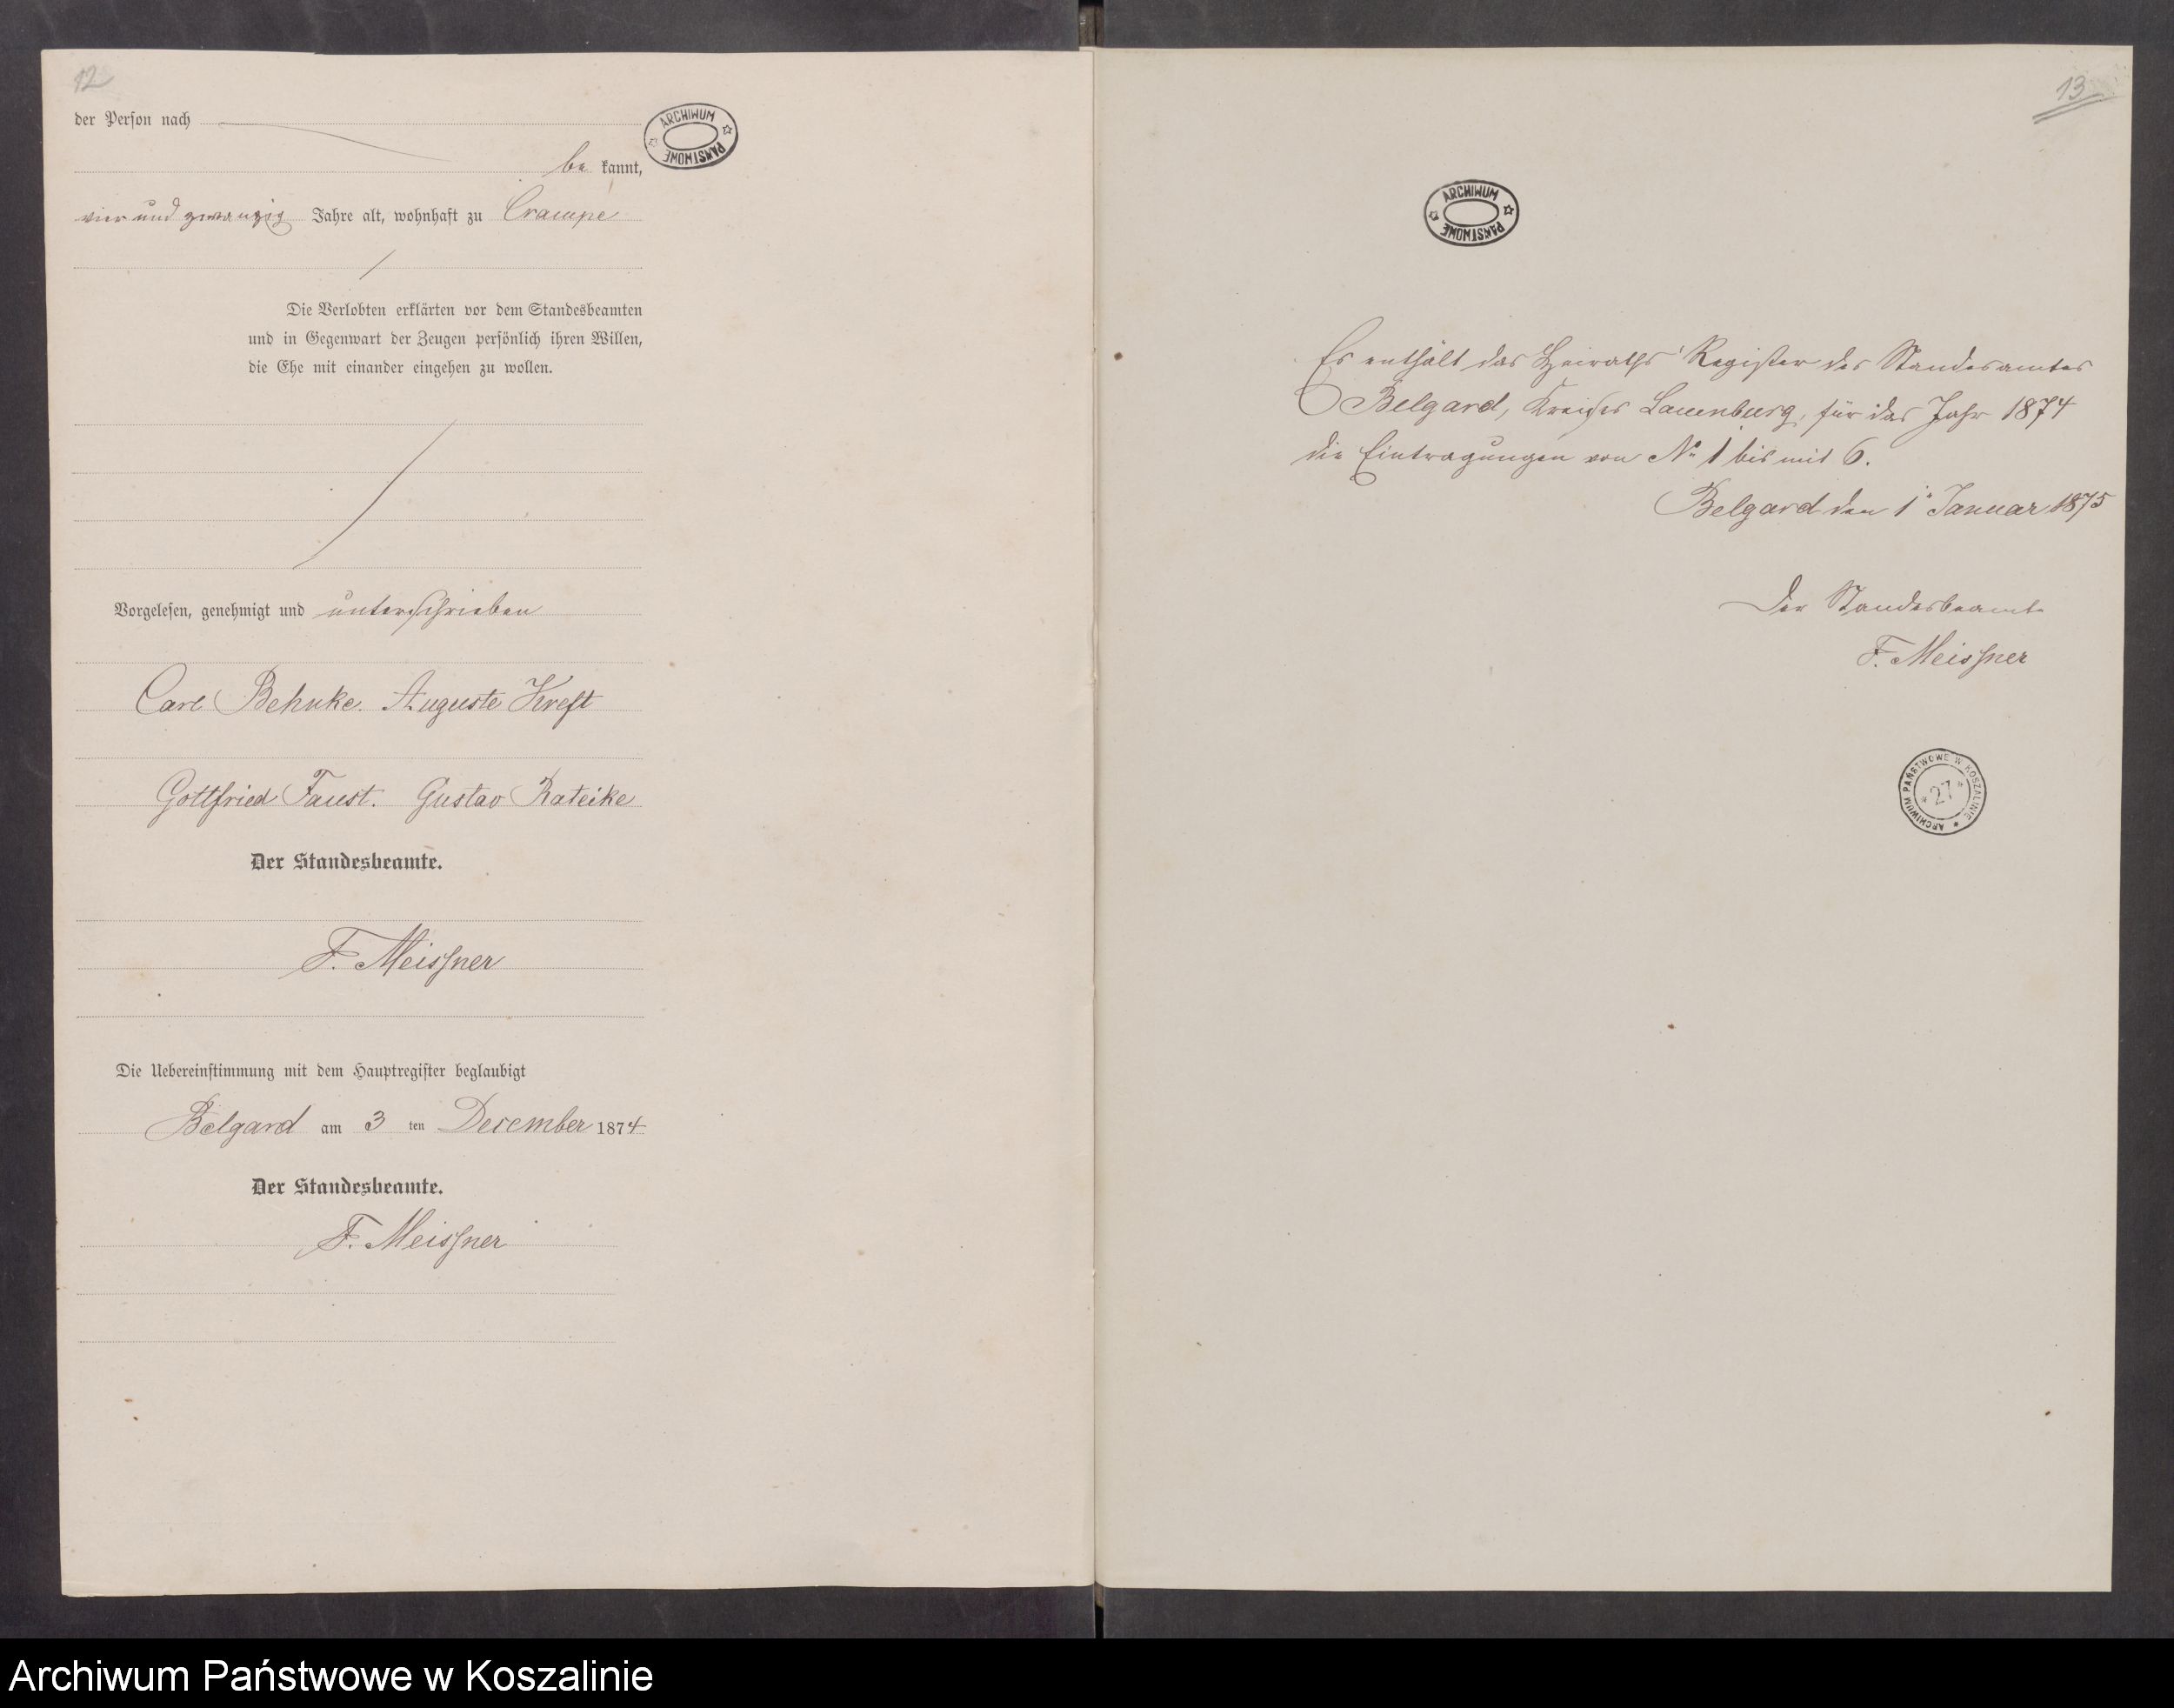 12
der Person nach
ARCHIWUM PAŃSTWOWE
be kannt,
vier und zwanzig Jahre alt, wohnhaft zu Crampe
Die Verlobten erklärten vor dem Standesbeamten
und in Gegenwart der Zeugen persönlich ihren Willen,
die Ehe mit einander eingehen zu wollen.
Vorgelesen, genehmigt und unterschrieben
Carl Behnke. Auguste Kreft
Gottfried Faust. Gustav Rateike
Der Standesbeamte.
F. Meissner
Die Uebereinstimmung mit dem Hauptregister beglaubigt
Belgard am 3 ten December 1874
Der Standesbeamte.
F. Meissner
13
ARCHIWUM PAŃSTWOWE
Es enthält das Heiraths Register des Standesamtes
Belgard, Kreises Lauenburg, für das Jahr 1874
die Eintragungen von No 1 bis mit 6.
Belgard den 1. Januar 1875
Der Standesbeamte
F. Meissner
ARCHIWUM PAŃSTWOWE W KOSZALINIE
* 27 *
Archiwum Państwowe w Koszalinie